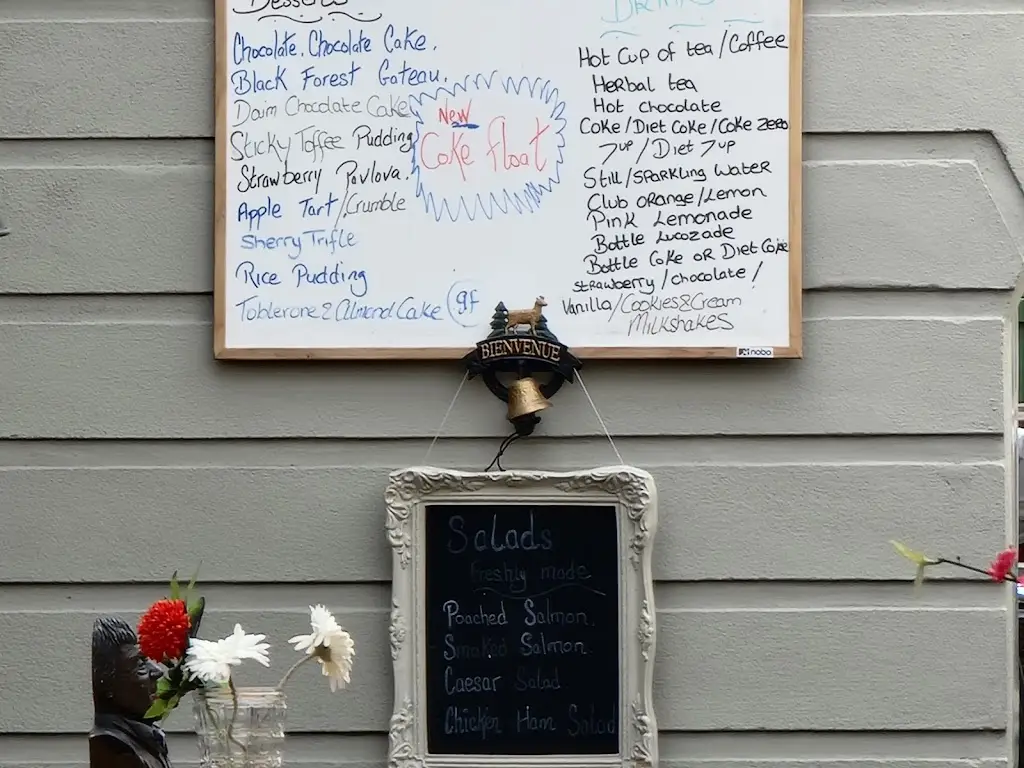 Desserts
Chocolate, Chocolate Cake.
Black Forest Gateau.
Daim Chocolate Cake
Sticky Toffee Pudding
Strawberry Pavlova.
Apple Tart/Crumble
Sherry Trifle
Rice Pudding
Toblerone & Almond Cake gf
New
Coke float
Drinks
Hot Cup of tea/Coffee
Herbal tea
Hot chocolate
Coke/Diet Coke/Coke Zero
7up/Diet 7up
Still/Sparkling Water
Club Orange/Lemon
Pink Lemonade
Bottle Lucozade
Bottle Coke OR Diet Coke
Strawberry/chocolate/
Vanilla/Cookies & Cream
Milkshakes
nobo
BIENVENUE
Salads
freshly made
Poached Salmon.
Smoked Salmon.
Caesar Salad
Chicken Ham Salad